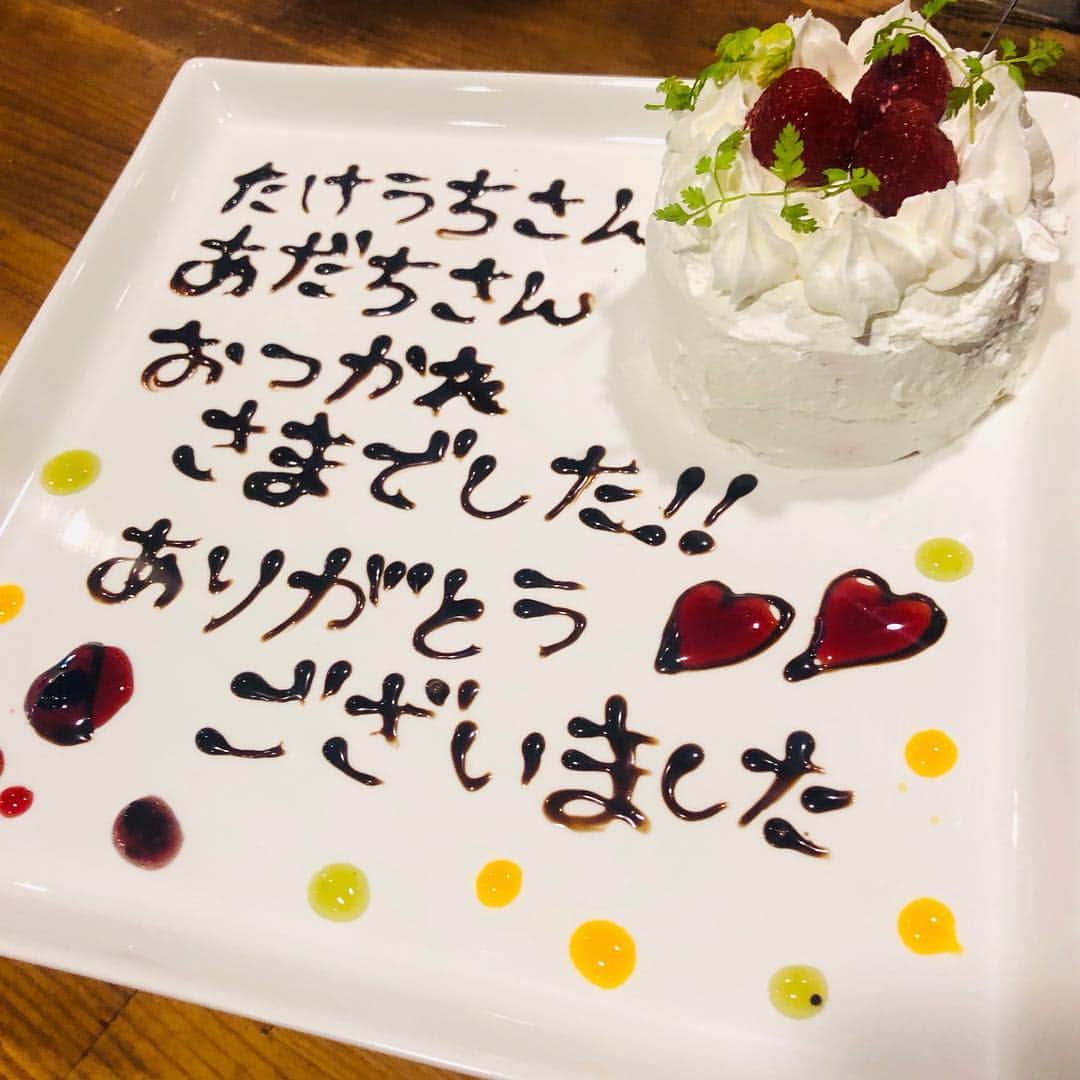 たけうちさん
あだちさん
おつかれ
さまでした!!
ありがとう
ございました